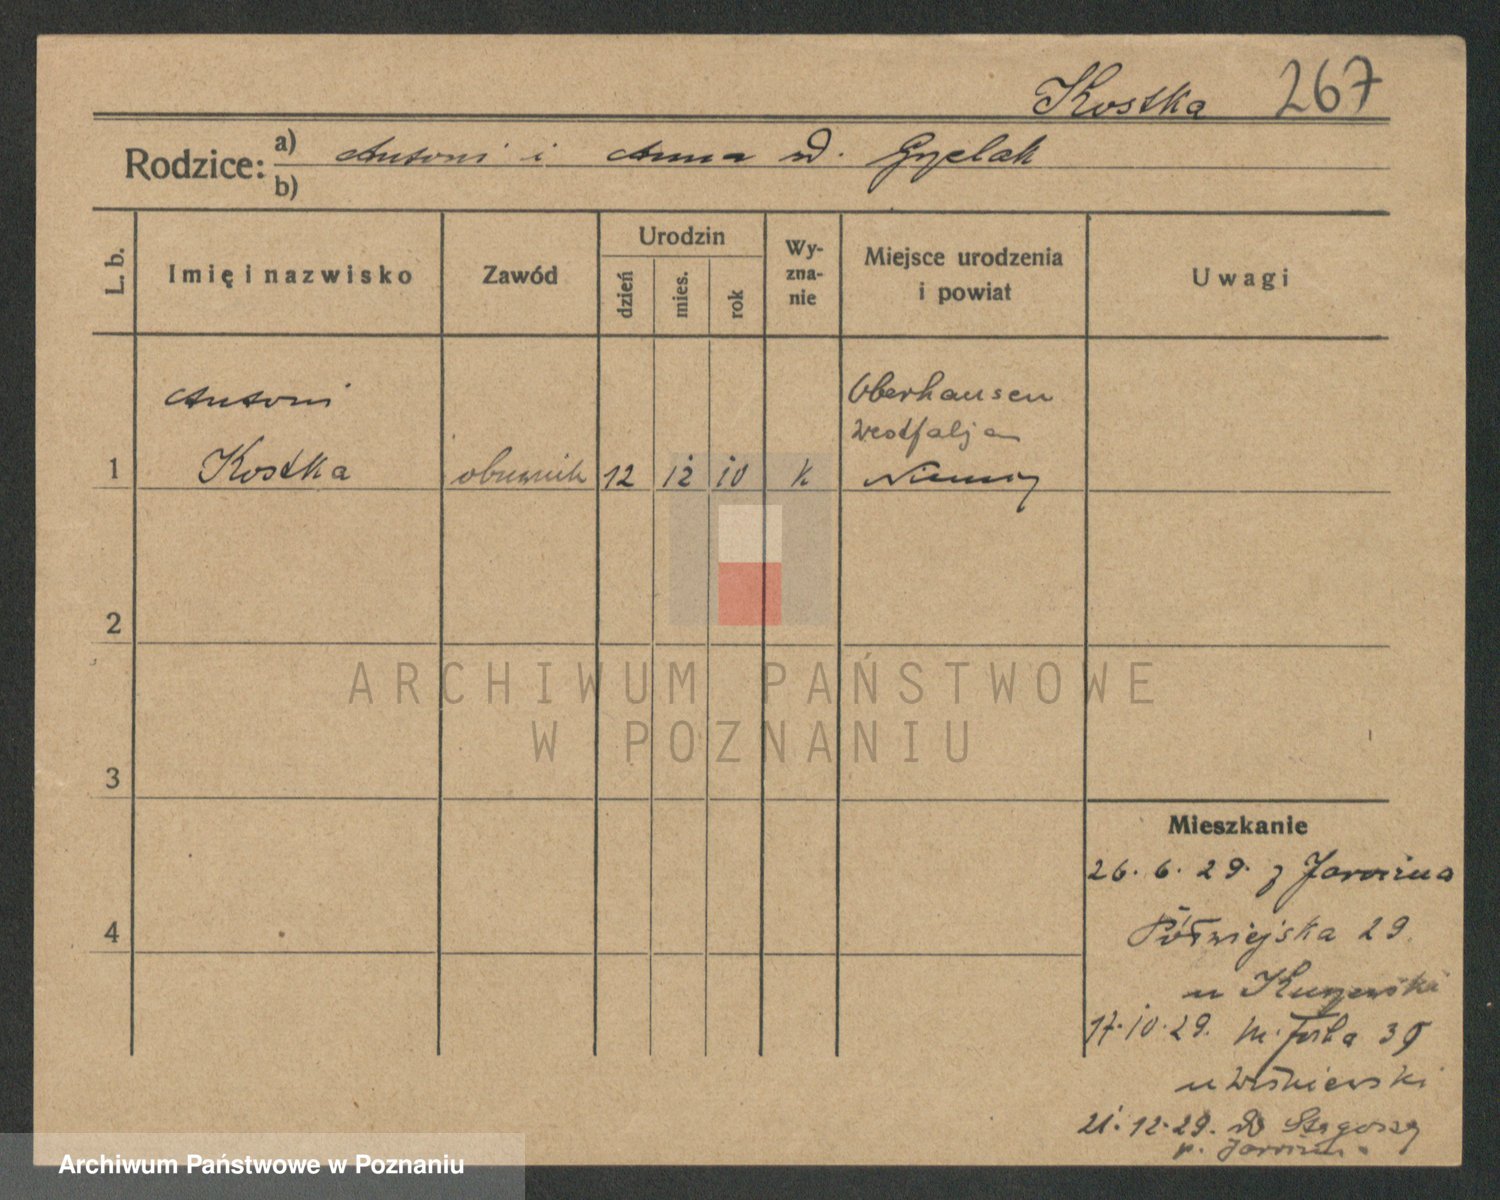 Kostka 267
Rodzice:
a) Antoni i Anna
b)
L. b.
Imię i nazwisko
Zawód
Urodzin
dzień
mies.
rok
Wy-
zna-
nie
Miejsce urodzenia
i powiat
Uwagi
Antoni
Oberhausen
Westfalja
1 Kostka obuwnik 12 12 10 k Niemcy
2
ARCHIWUM PAŃSTWOWE
W POZNANIU
3
Mieszkanie
26. 6. 29. z Jarocina
4
Półwiejska 29.
u
17.10.29.
u Wiśniewski
21.12.29. do
p. Jarocin
Archiwum Państwowe w Poznaniu